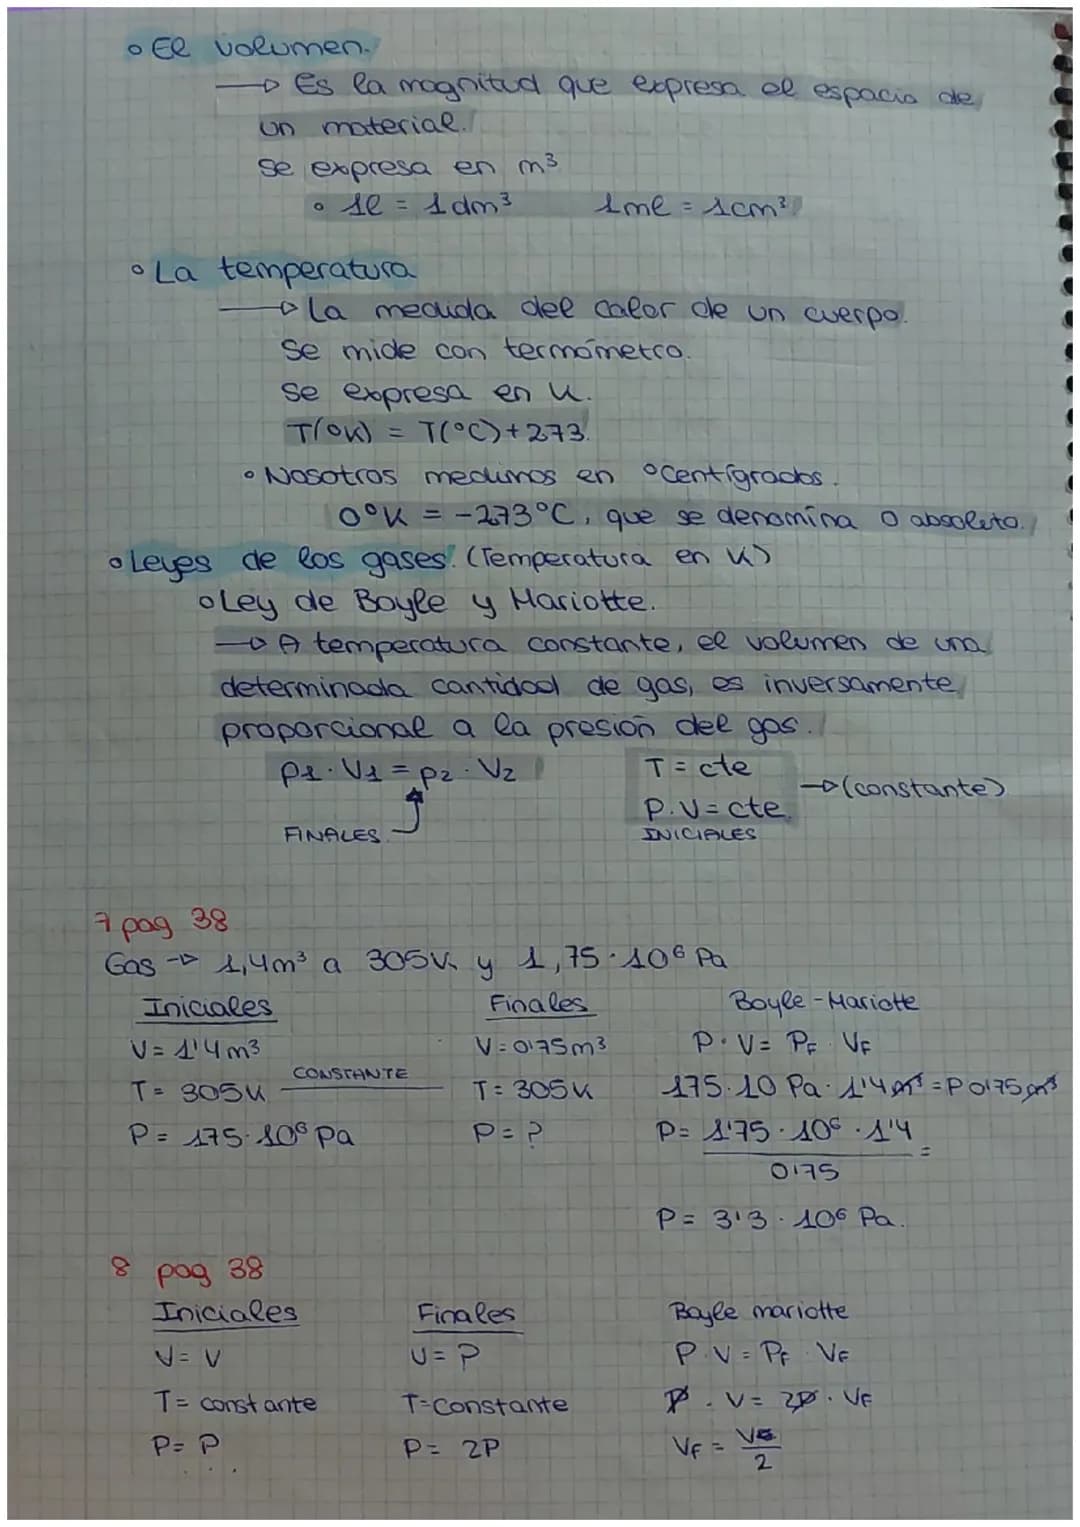 ∘ El volumen.
→ Es la magnitud que expresa el espacio de
un material.
Se expresa en m³
∘ 1l = 1dm³ 1ml = 1cm³
∘ La temperatura
→ La medida del calor de un cuerpo.
Se mide con termómetro.
Se expresa en K.
T(ºK) = T(ºC)+273.
∘ Nosotros medimos en ºCentígrados.
0ºK = -273ºC, que se denomina 0 absoluto.
∘ Leyes de los gases. (Temperatura en K)
∘ Ley de Boyle y Mariotte.
→ A temperatura constante, el volumen de una
determinada cantidad de gas, es inversamente
proporcional a la presión del gas.
P1 · V1 = P2 · V2 T = cte
P.V = cte. → (constante)
FINALES INICIALES
7 pag 38
Gas → 1,4m³ a 305K y 1,75·10⁶ Pa
Iniciales Finales Boyle-Mariotte
V= 1'4m³ V= 0'75m³ P· V= PF · VF
T= 305K CONSTANTE T= 305K 175·10 Pa · 1'4m³ = P 0'75m³
P= 175·10⁶ Pa P= ? P= 1'75 · 10⁶ · 1'4 =
0'75
P= 3'3 · 10⁶ Pa.
8 pag 38
Iniciales Finales Boyle mariotte
V= V V= P P·V = PF · VF
T= constante T=Constante P · V= 2P · VF
P= P P= 2P VF = V
2